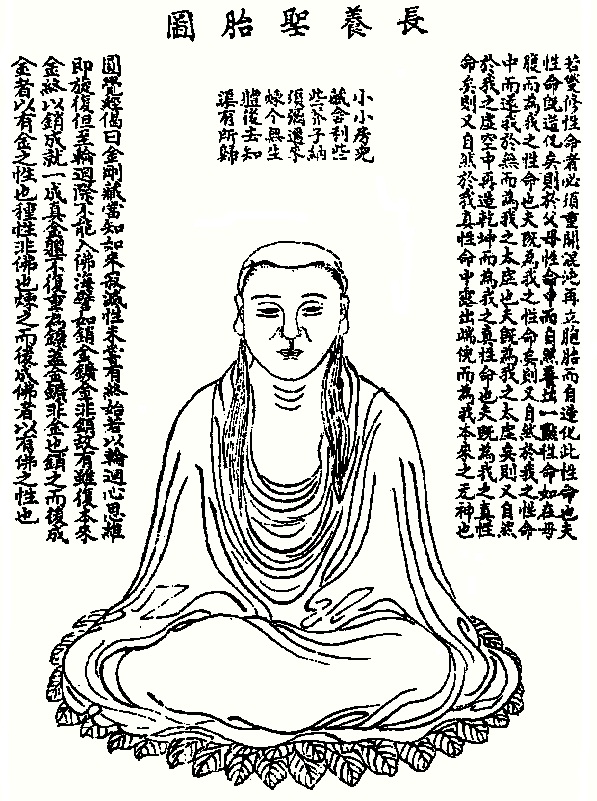 長養聖胎圖
若欲修性命者必須重開混沌再立胞胎而自造化此性命也夫
性命既造化矣則於父母性命中而自然養培一點性命如在母
腹而為我之性命也夫既為我之性命矣則又自然於我之性命
中而還我於無而為我之太虛也夫既為我之太虛矣則又自然
於我之虛空中再造乾坤而為我之真性命也夫既為我之真性
命矣則又自然於我真性命中露出端倪而為我本來之元神也
小小房兒
藏金利些
些芥子納
須彌還來
煉个無生
體後去知
渠有所歸
圓覺經偈曰金剛藏當知如來寂滅性未嘗有終始若以輪迴心思維
即旋復但至輪迴際不能入佛海譬如銷金鑛金非銷故有雖復本來
金終以銷成就一成真金體不復重為鑛蓋金鑛非金也銷之而後成
金者以有金之性也種性非佛也煉之而後成佛者以有佛之性也